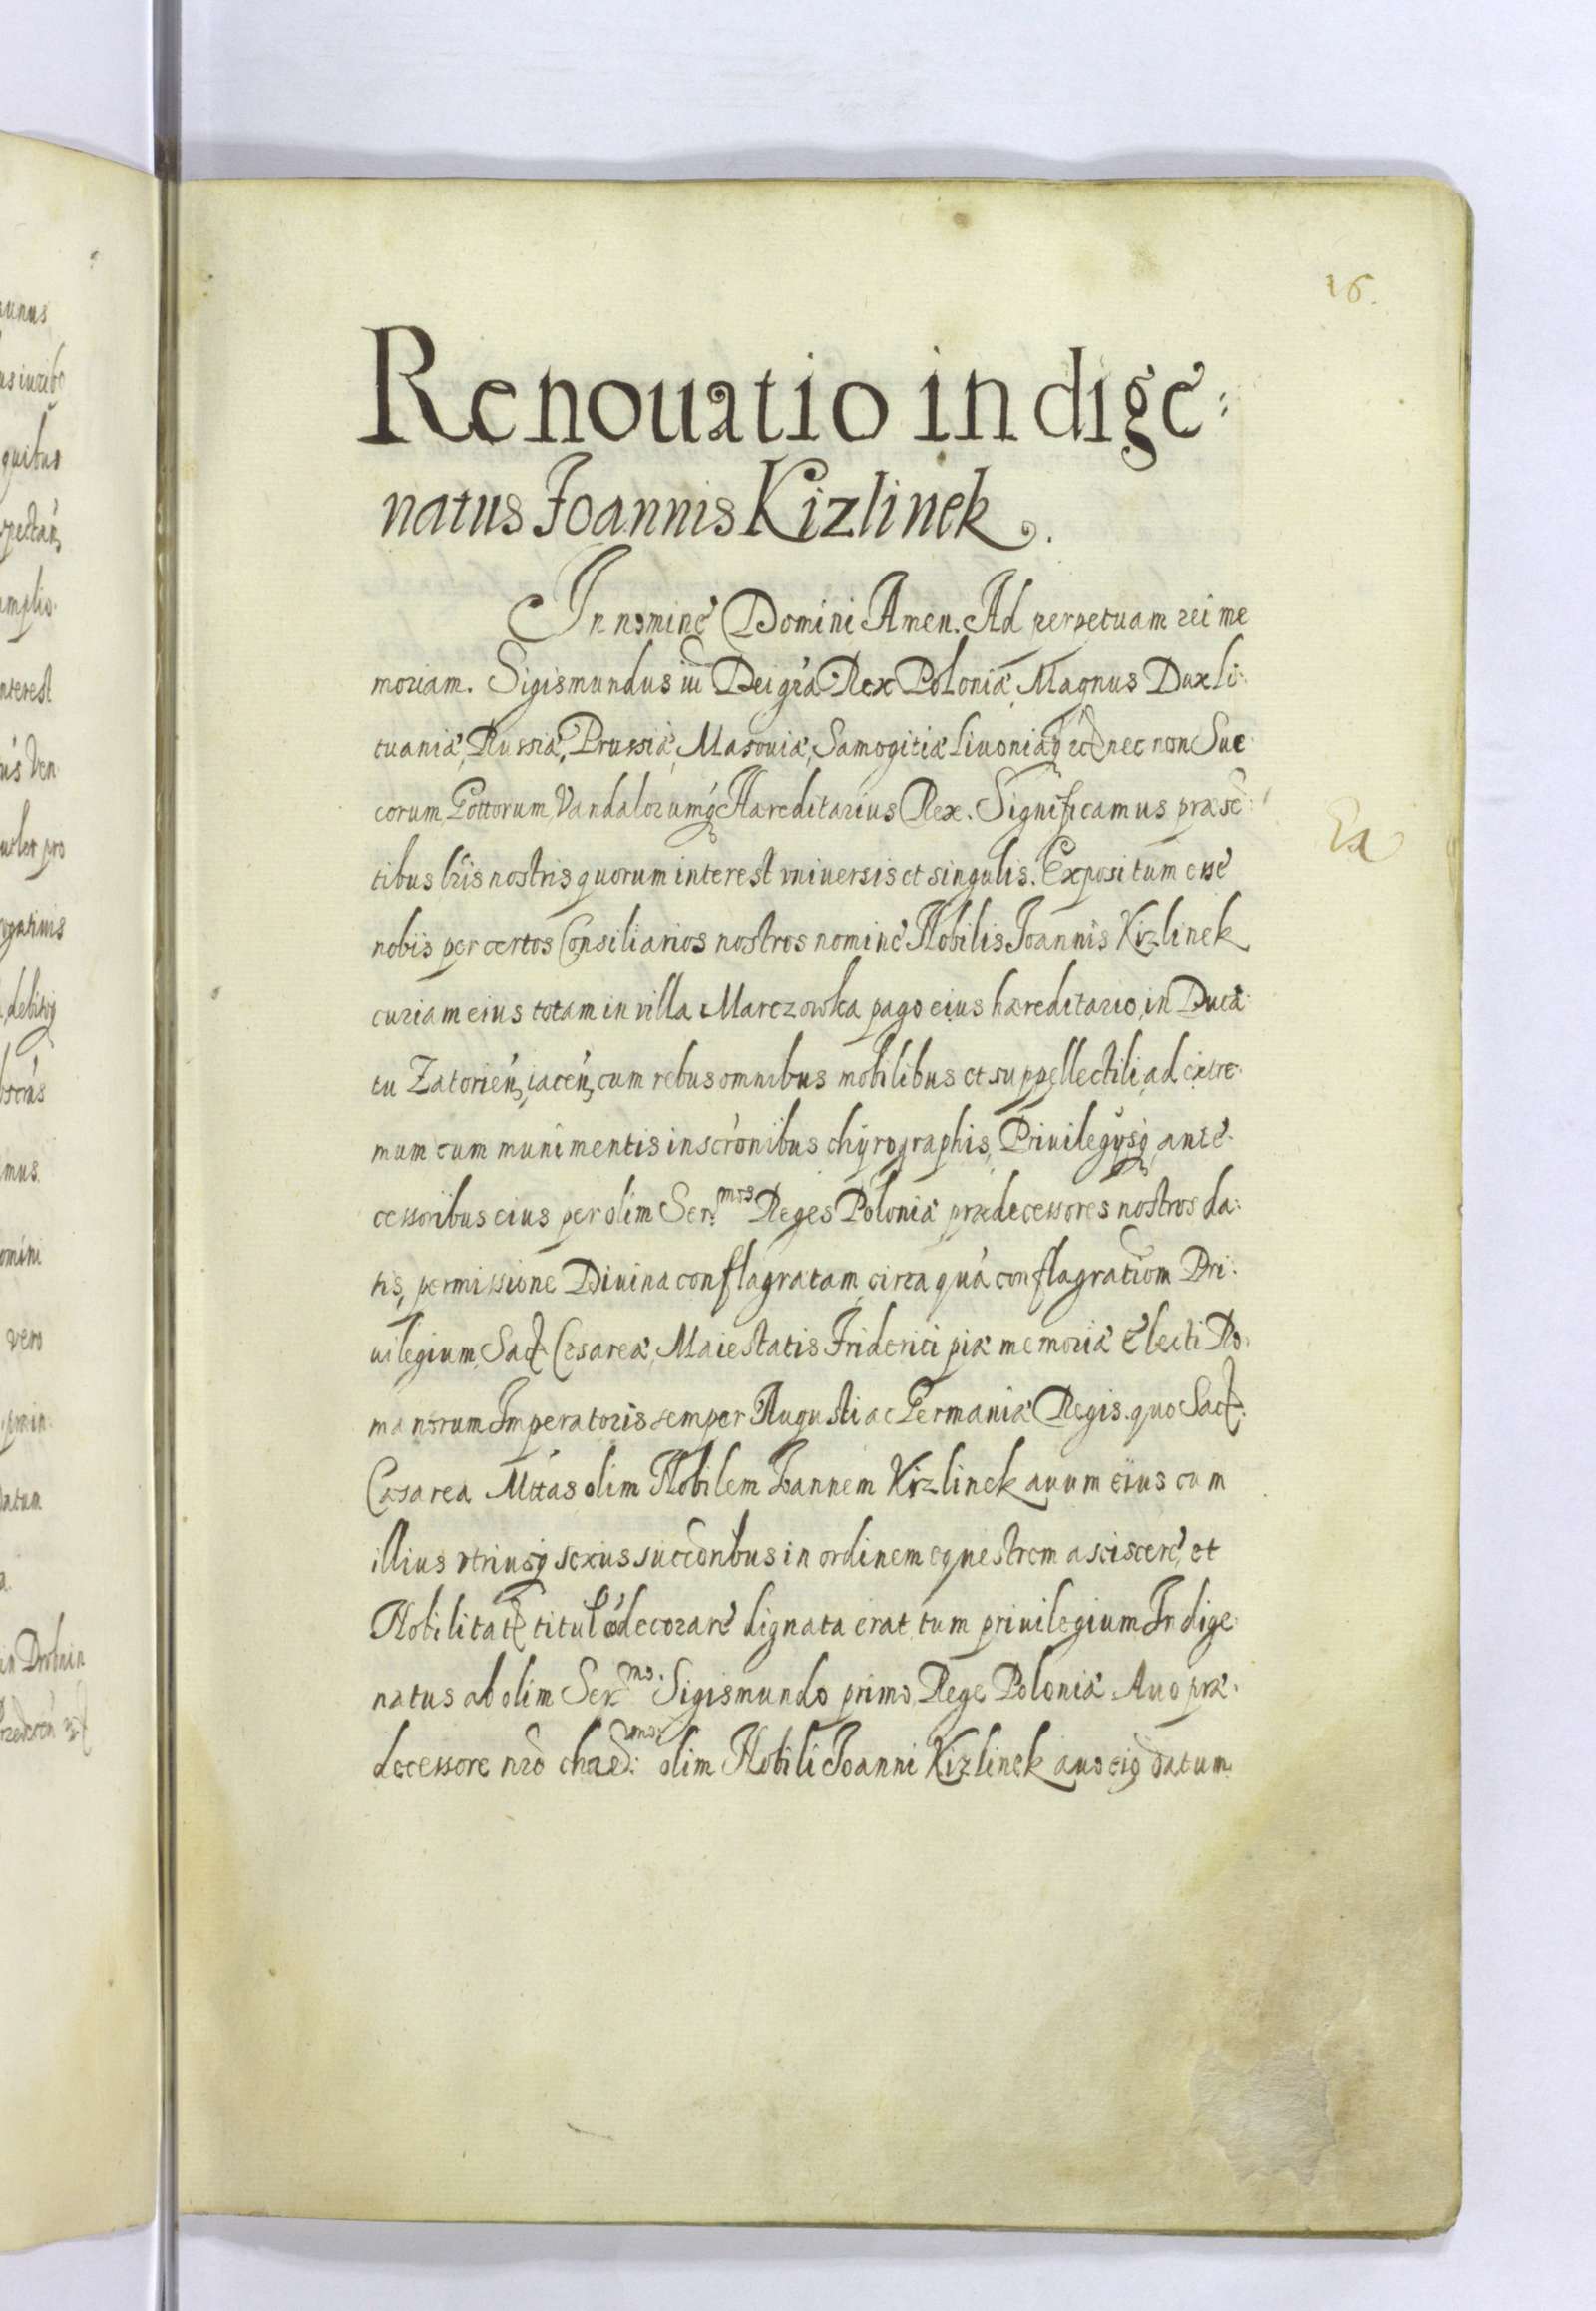 16.
Renouatio indige:
natus Joannis Kizlinek.
In nominè Domini Amen. Ad perpetuam rei me
moriam. Sigismundus iii Dei gra Rex Poloniæ, Magnus Dux Li:
tuaniæ, Russiæ, Prussiæ, Masouiæ, Samogitiæ Liuoniæq nec non Sue
corum Gottorum, Vandalorumq Hæreditarius Rex. Significamus præsē:
tibus lris nostris quorum interest vniuersis et singulis. Expositum esse
nobis per certos Consiliarios nostros nominè Nobilis Joannis Kizlinek
curiam eius totam in villa Marczowka pago eius hæreditario, in Duca:
tu Zatorień, iaceń, cum rebus omnibus mobilibus et suppellectili, ad extre:
mum cum munimentis inscronibus chyrographis, Priuilegysq, ante:
cessoribus eius per olim Ser:mos Reges Poloniæ prædecessores nostros da:
tis, permissione Diuina conflagratam, circa quà conflagratiom Pri:
uilegium, Sac Cesareæ, Maiestatis Friderici piæ memoriæ Electi Ro:
manorum Imperatoris semper Augusti ac Germaniæ Regis. quo Sac:
Cæsarea Mttas olim Nobilem Joannem Kizlinek auum eius cum
illius vtriusq sexus succonibus in ordinem equestrem asciscerè, et
Nobilitat titulō decorarè dignata erat, tum priuilegium Indige:
natus ab olim Ser mo. Sigismundo primo Rege Poloniæ Auo præ:
decessore nro char:mo: olim Nobili Joanni Kizlinek auo eiq datum
Ex